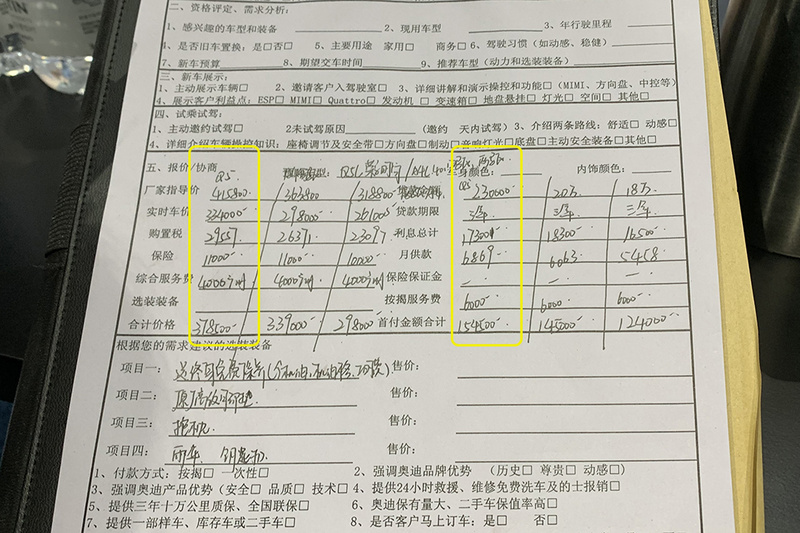 二、资格评定、需求分析:
1、感兴趣的车型和装备 2、现用车型 3、年行驶里程
4、是否旧车置换: 是□否□ 5、主要用途 家用□ 商务□ 6、驾驶习惯(如动感、稳健)
7、新车预算 8、期望交车时间 9、推荐车型(动力和选装装备)
三、新车展示:
1、主动展示车辆□ 2、邀请客户入驾驶室□ 3、详细讲解和演示操控和功能□(MIMI、方向盘、中控等)
4、展示客户利益点: ESP□ MIMI□ Quattro□ 发动机□ 变速箱□ 地盘悬挂□ 灯光□ 空间□ 其他□
四、试乘试驾:
1、主动邀约试驾□ 2未试驾原因 (邀约 天内试驾) 3、介绍两条路线: 舒适□ 动感□
4、详细介绍车辆操控知识: 座椅调节及安全带□方向盘□制动□音响灯光□底盘□主动安全装备□其他□
五、报价/协商 Q5 Q5L 颜色: 内饰颜色:
厂家指导价 415800 363800 318800 Q5 230000 20万 18万
实时车价 334000 298000 261000 贷款期限 三年 三年 三年
购置税 29557 26371 23097 利息总计 17300 18300 16500
保险 11000 11000 10000 月供款 6869 6063 5458
综合服务费 4000 4000 4000 保险保证金 — — —
选装装备 按揭服务费 6000 6000 6000
合计价格 378500 339000 298000 首付金额合计 154500 145000 124000
根据您的需求建议的选装装备
项目一: 送终身免费保养 售价:
项目二: 原厂 脚垫 售价:
项目三: 挖机 售价:
项目四: 雨伞 钥匙扣 售价:
1、付款方式: 按揭□ 一次性□ 2、强调奥迪品牌优势 (历史□ 尊贵□ 动感□)
3、强调奥迪产品优势(安全□ 品质□ 技术□ 4、提供24小时救援、维修免费洗车及的士报销□
5、提供三年十万公里质保、全国联保□ 6、奥迪保有量大、二手车保值率高□
7、提供一部样车、库存车或二手车□ 8、是否客户马上订车: 是□ 否□